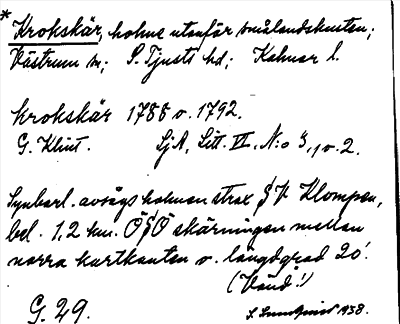 * Krokskär, holme utanför smålandskusten;
Västrum sn; S. Tjusts hd; Kalmar l.
Krokskär 1788 o. 1792.
G. Klint. SjA, Litt. VI, N:o 3, 1 o. 2.
Synbarl. avsågs holmen strax § V. Klompen,
bel. 1,2 km. Ö§Ö skärningen mellan
norra kartkanten o. längdgrad 20'.
(Vänd!)
G. 29. S. Lundqvist 1938.